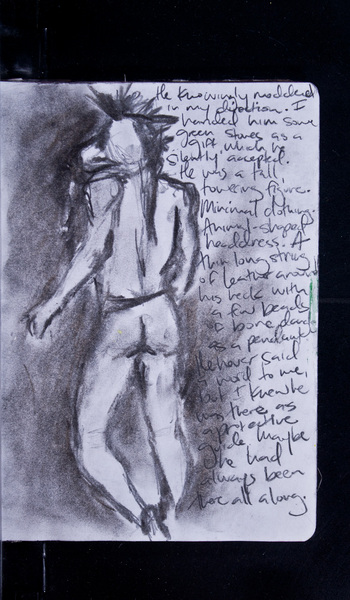 He knowingly nodded
in my direction. I
handed him some
green stones as a
gift which he
silently accepted.
He was a tall,
towering figure.
Minimal clothing.
Animal-shaped
headdress. A
thin long string
of leather around
his neck with
a few beads
of bone
as a
He never said
a word to me,
but I knew he
was there as
a protective
guide. Maybe
he had
always been
there all along.